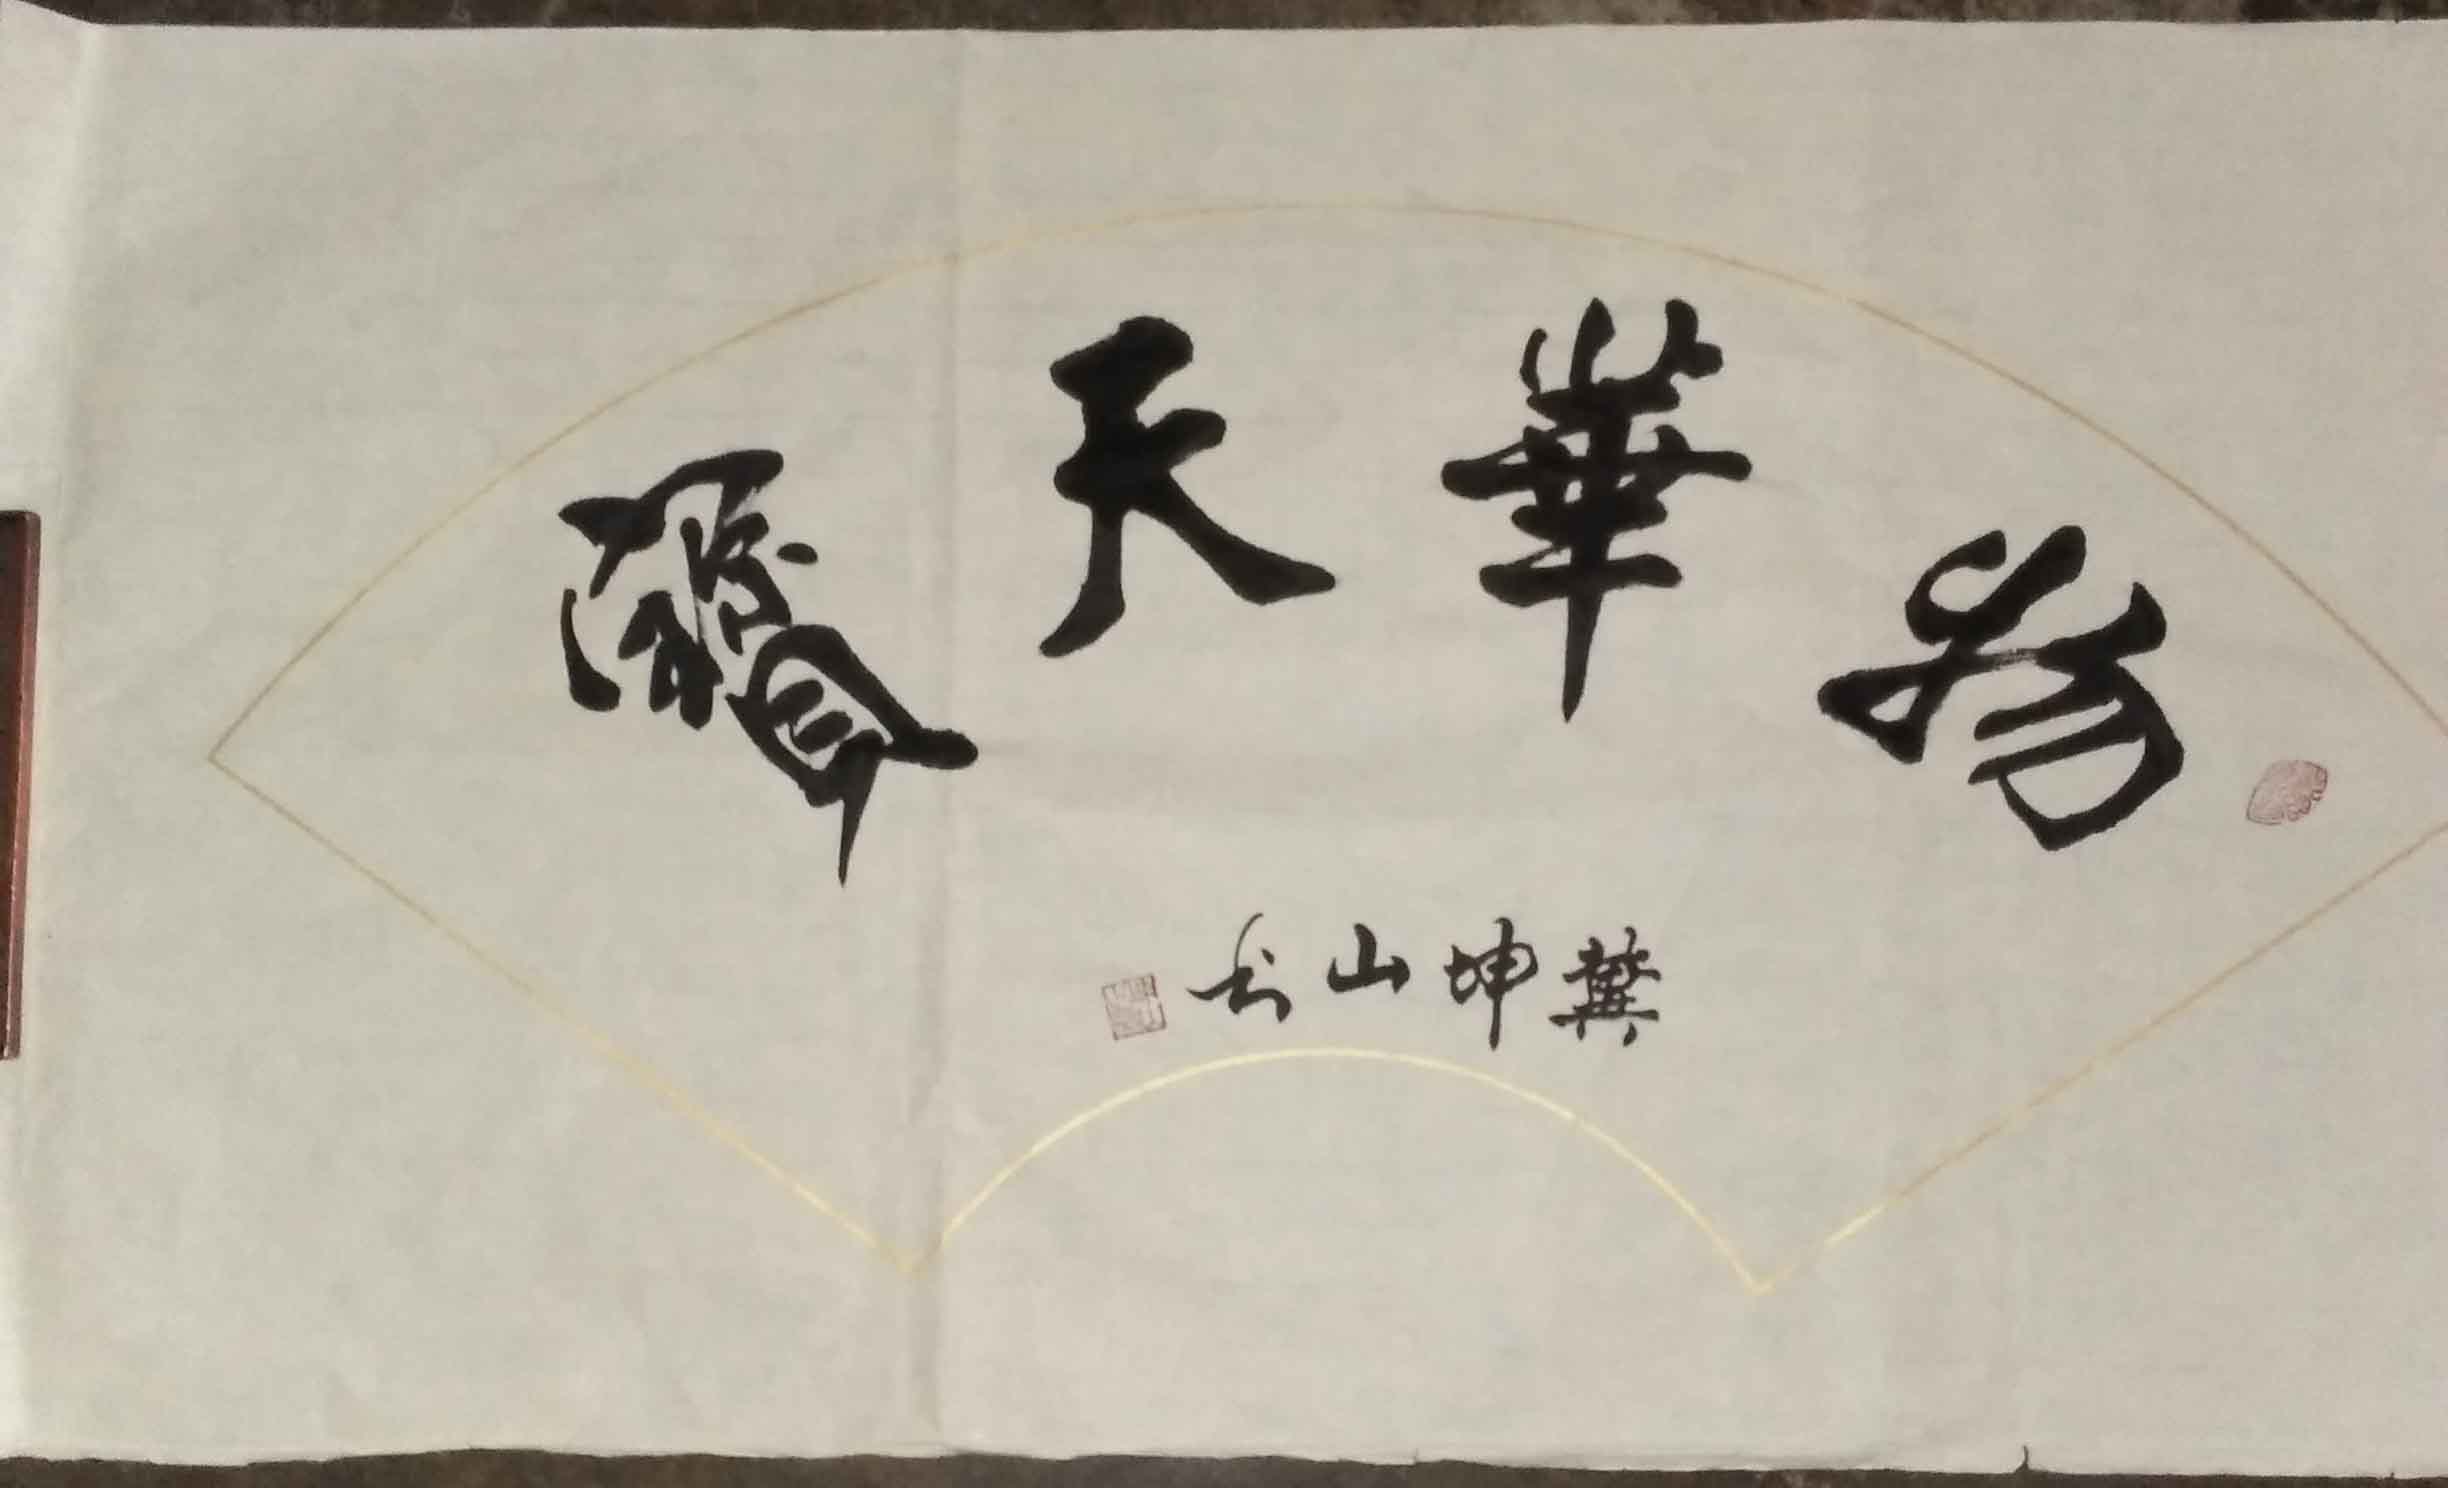 物華天寶
龔坤山书